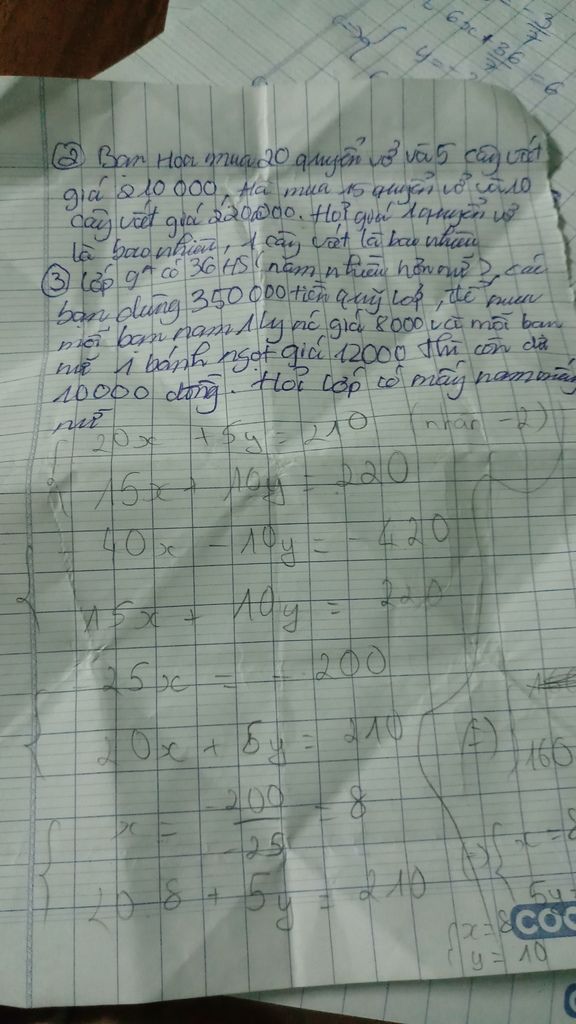 3/7
6x + 36/7 = 6
② Bạn Hoa mua 20 quyển vở và 5 cây viết
giá 210 000, Hà mua 15 quyển vở và 10
cây viết giá 220000. Hỏi giá 1 quyển vở
là bao nhiêu, 1 cây viết là bao nhiêu
③ Lớp 9a có 36 HS (nam nhiều hơn nữ), các
bạn dùng 350 000 tiền quỹ lớp, để mua
mỗi bạn nam 1 ly nc giá 8000 và mỗi bạn
nữ 1 bánh ngọt giá 12000 thì còn dư
10000 đồng. Hỏi lớp có mấy nam mấy
nữ
{ 20x + 5y = 210 (nhân -2)
15x + 10y = 220
{ - 40x - 10y = - 420
15x + 10y = 220
{ - 25x = - 200
20x + 5y = 210
160
{ x = -200/-25 = 8
20.8 + 5y = 210
{ x = 8
5y =
{ x = 8
y = 10
COO